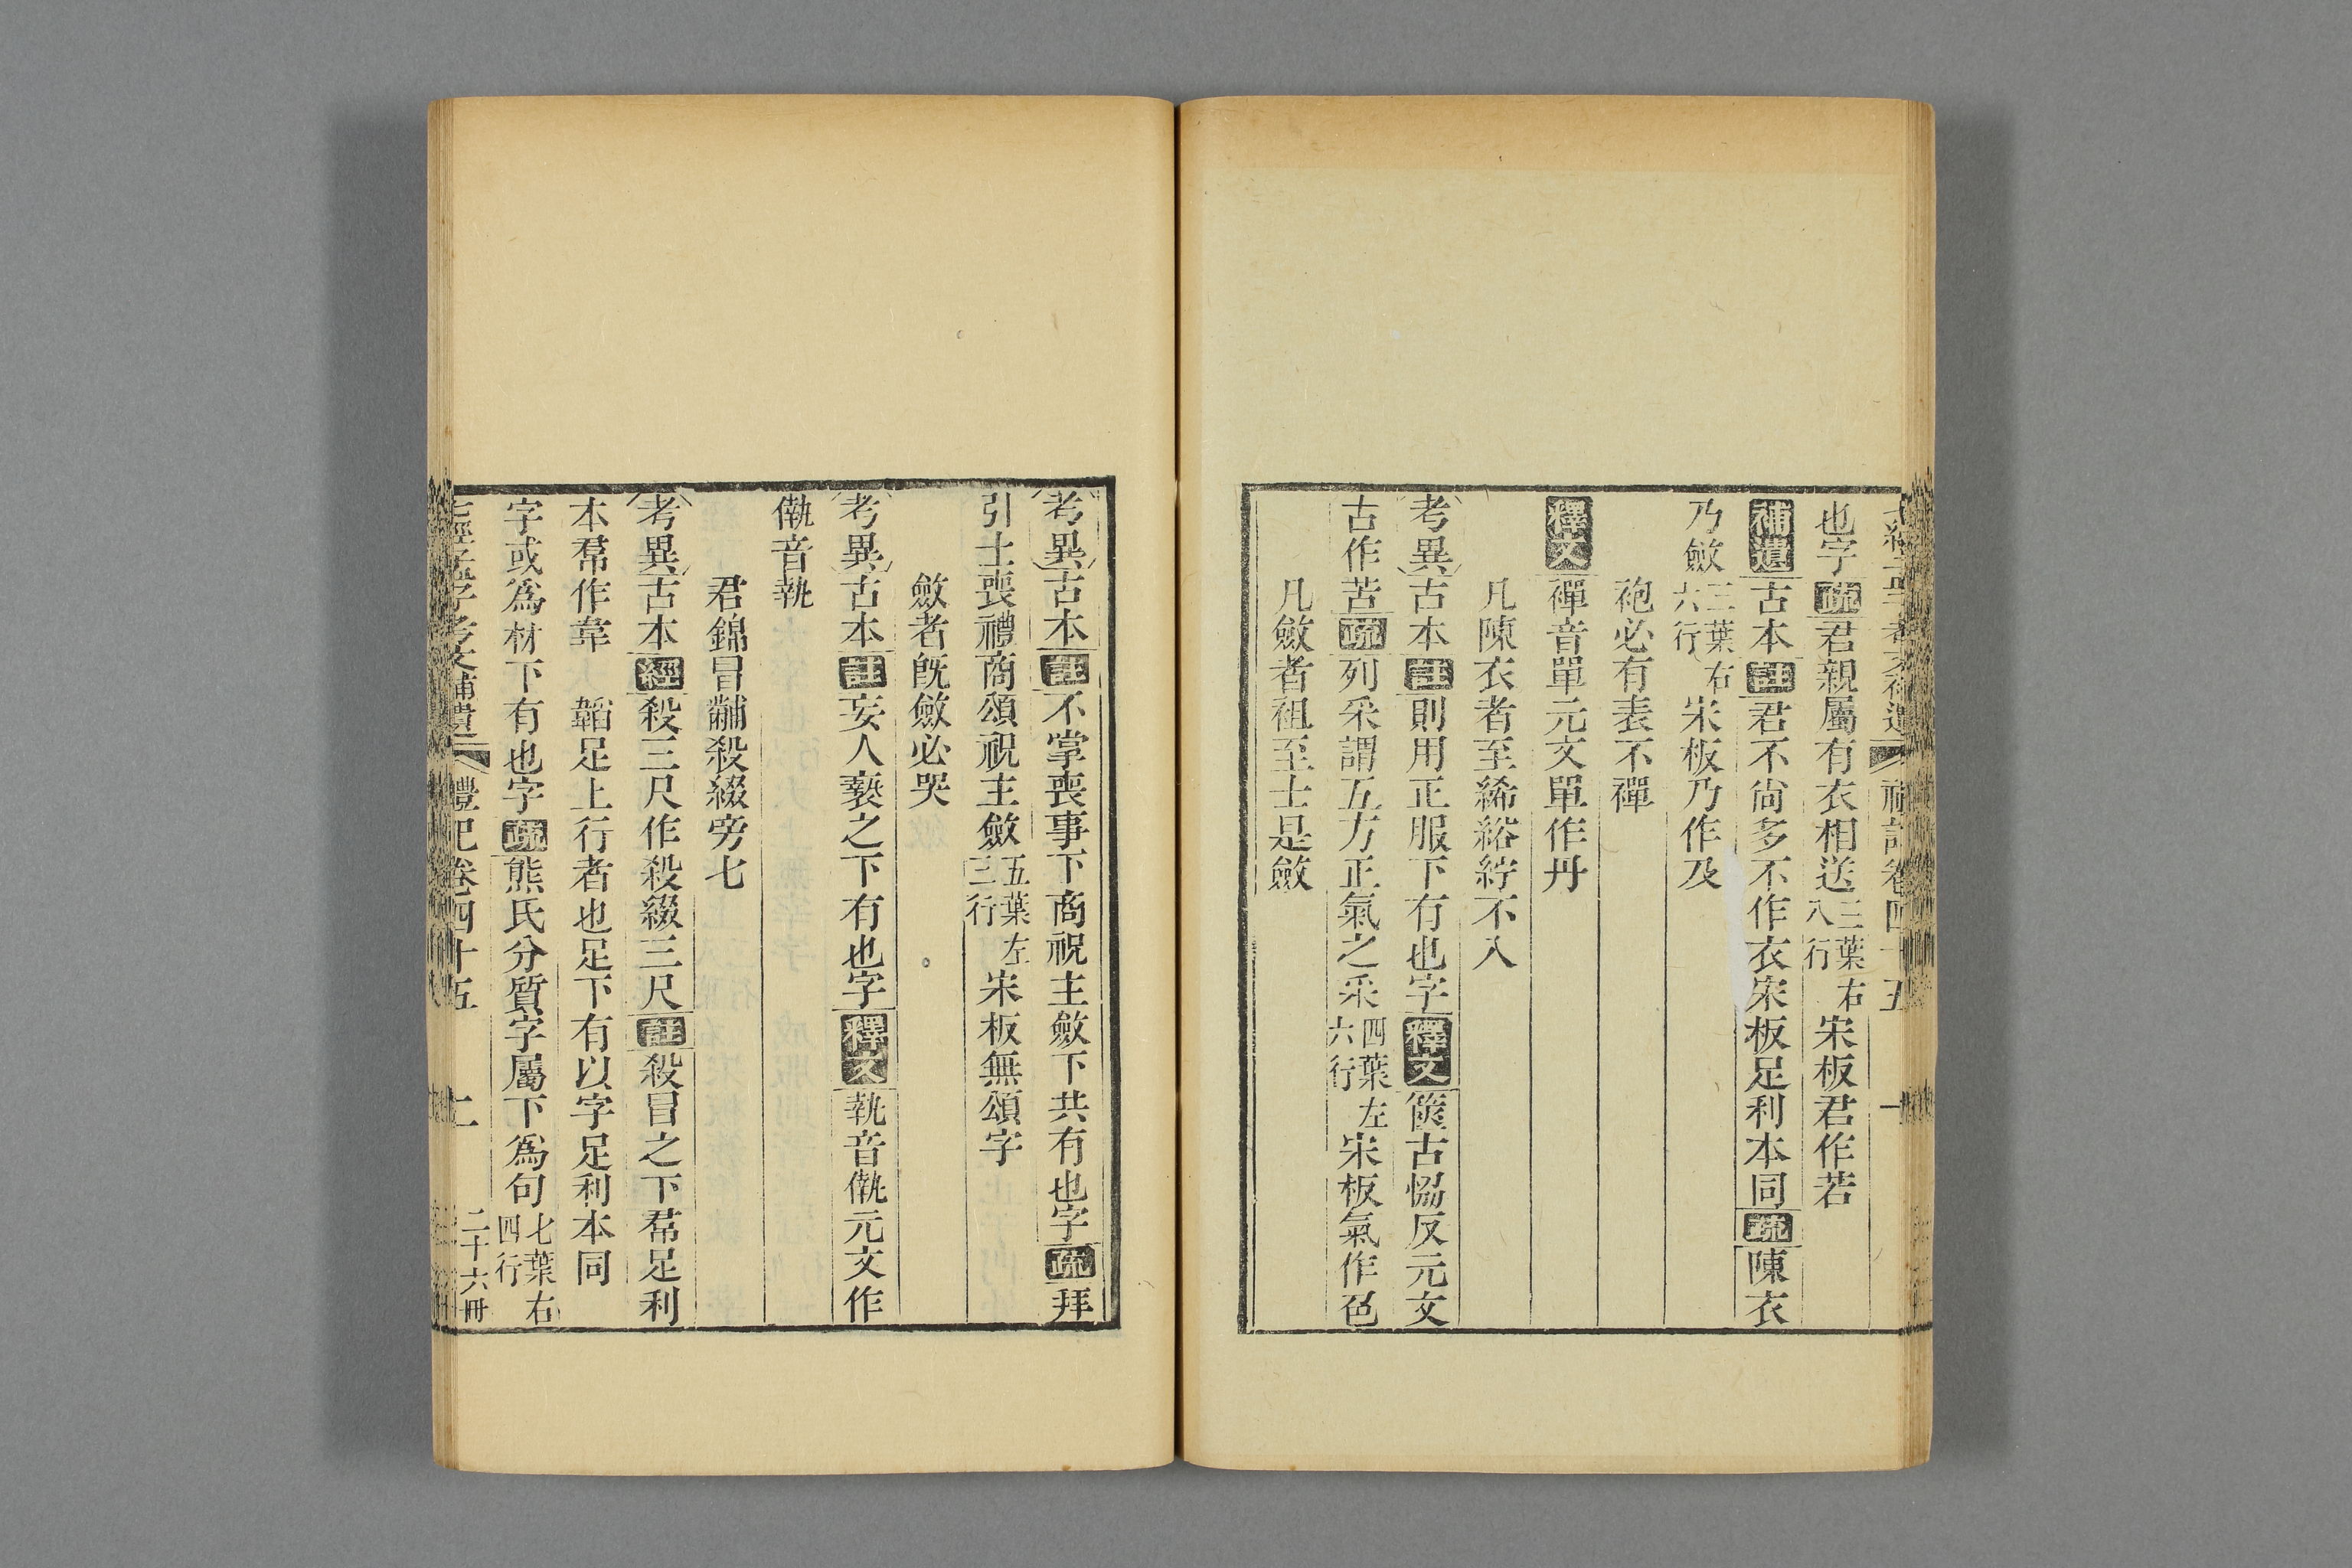 也字疏君親屬有衣相送三葉右八行宋板君作若
補遺古本註君不尚多不作衣宋板足利本同疏陳衣
乃斂三葉右六行宋板乃作及
袍必有表不襌
釋文襌音單元文單作丹
凡陳衣者至絺綌紵不入
考異古本註則用正服下有也字釋文篋古愶反元文
古作苦疏列采謂五方正氣之采四葉左六行宋板氣作色
凡斂者袒至士是斂
考異古本註不掌喪事下商祝主斂下共有也字疏拜
引士喪禮商頌祝主斂五葉左三行宋板無頌字
斂者旣斂必哭
考異古本註妄人褻之下有也字釋文執音㙯元文作
㙯音執
君錦冒黼殺綴旁七
考異古本經殺三尺作殺綴三尺註殺冒之下帬足利
本帬作韋 韜足上行者也足下有以字足利本同
字或爲材下有也字疏熊氏分質字屬下爲句七葉右四行
七經孟子考文補遺 禮記卷四十五 二十六冊